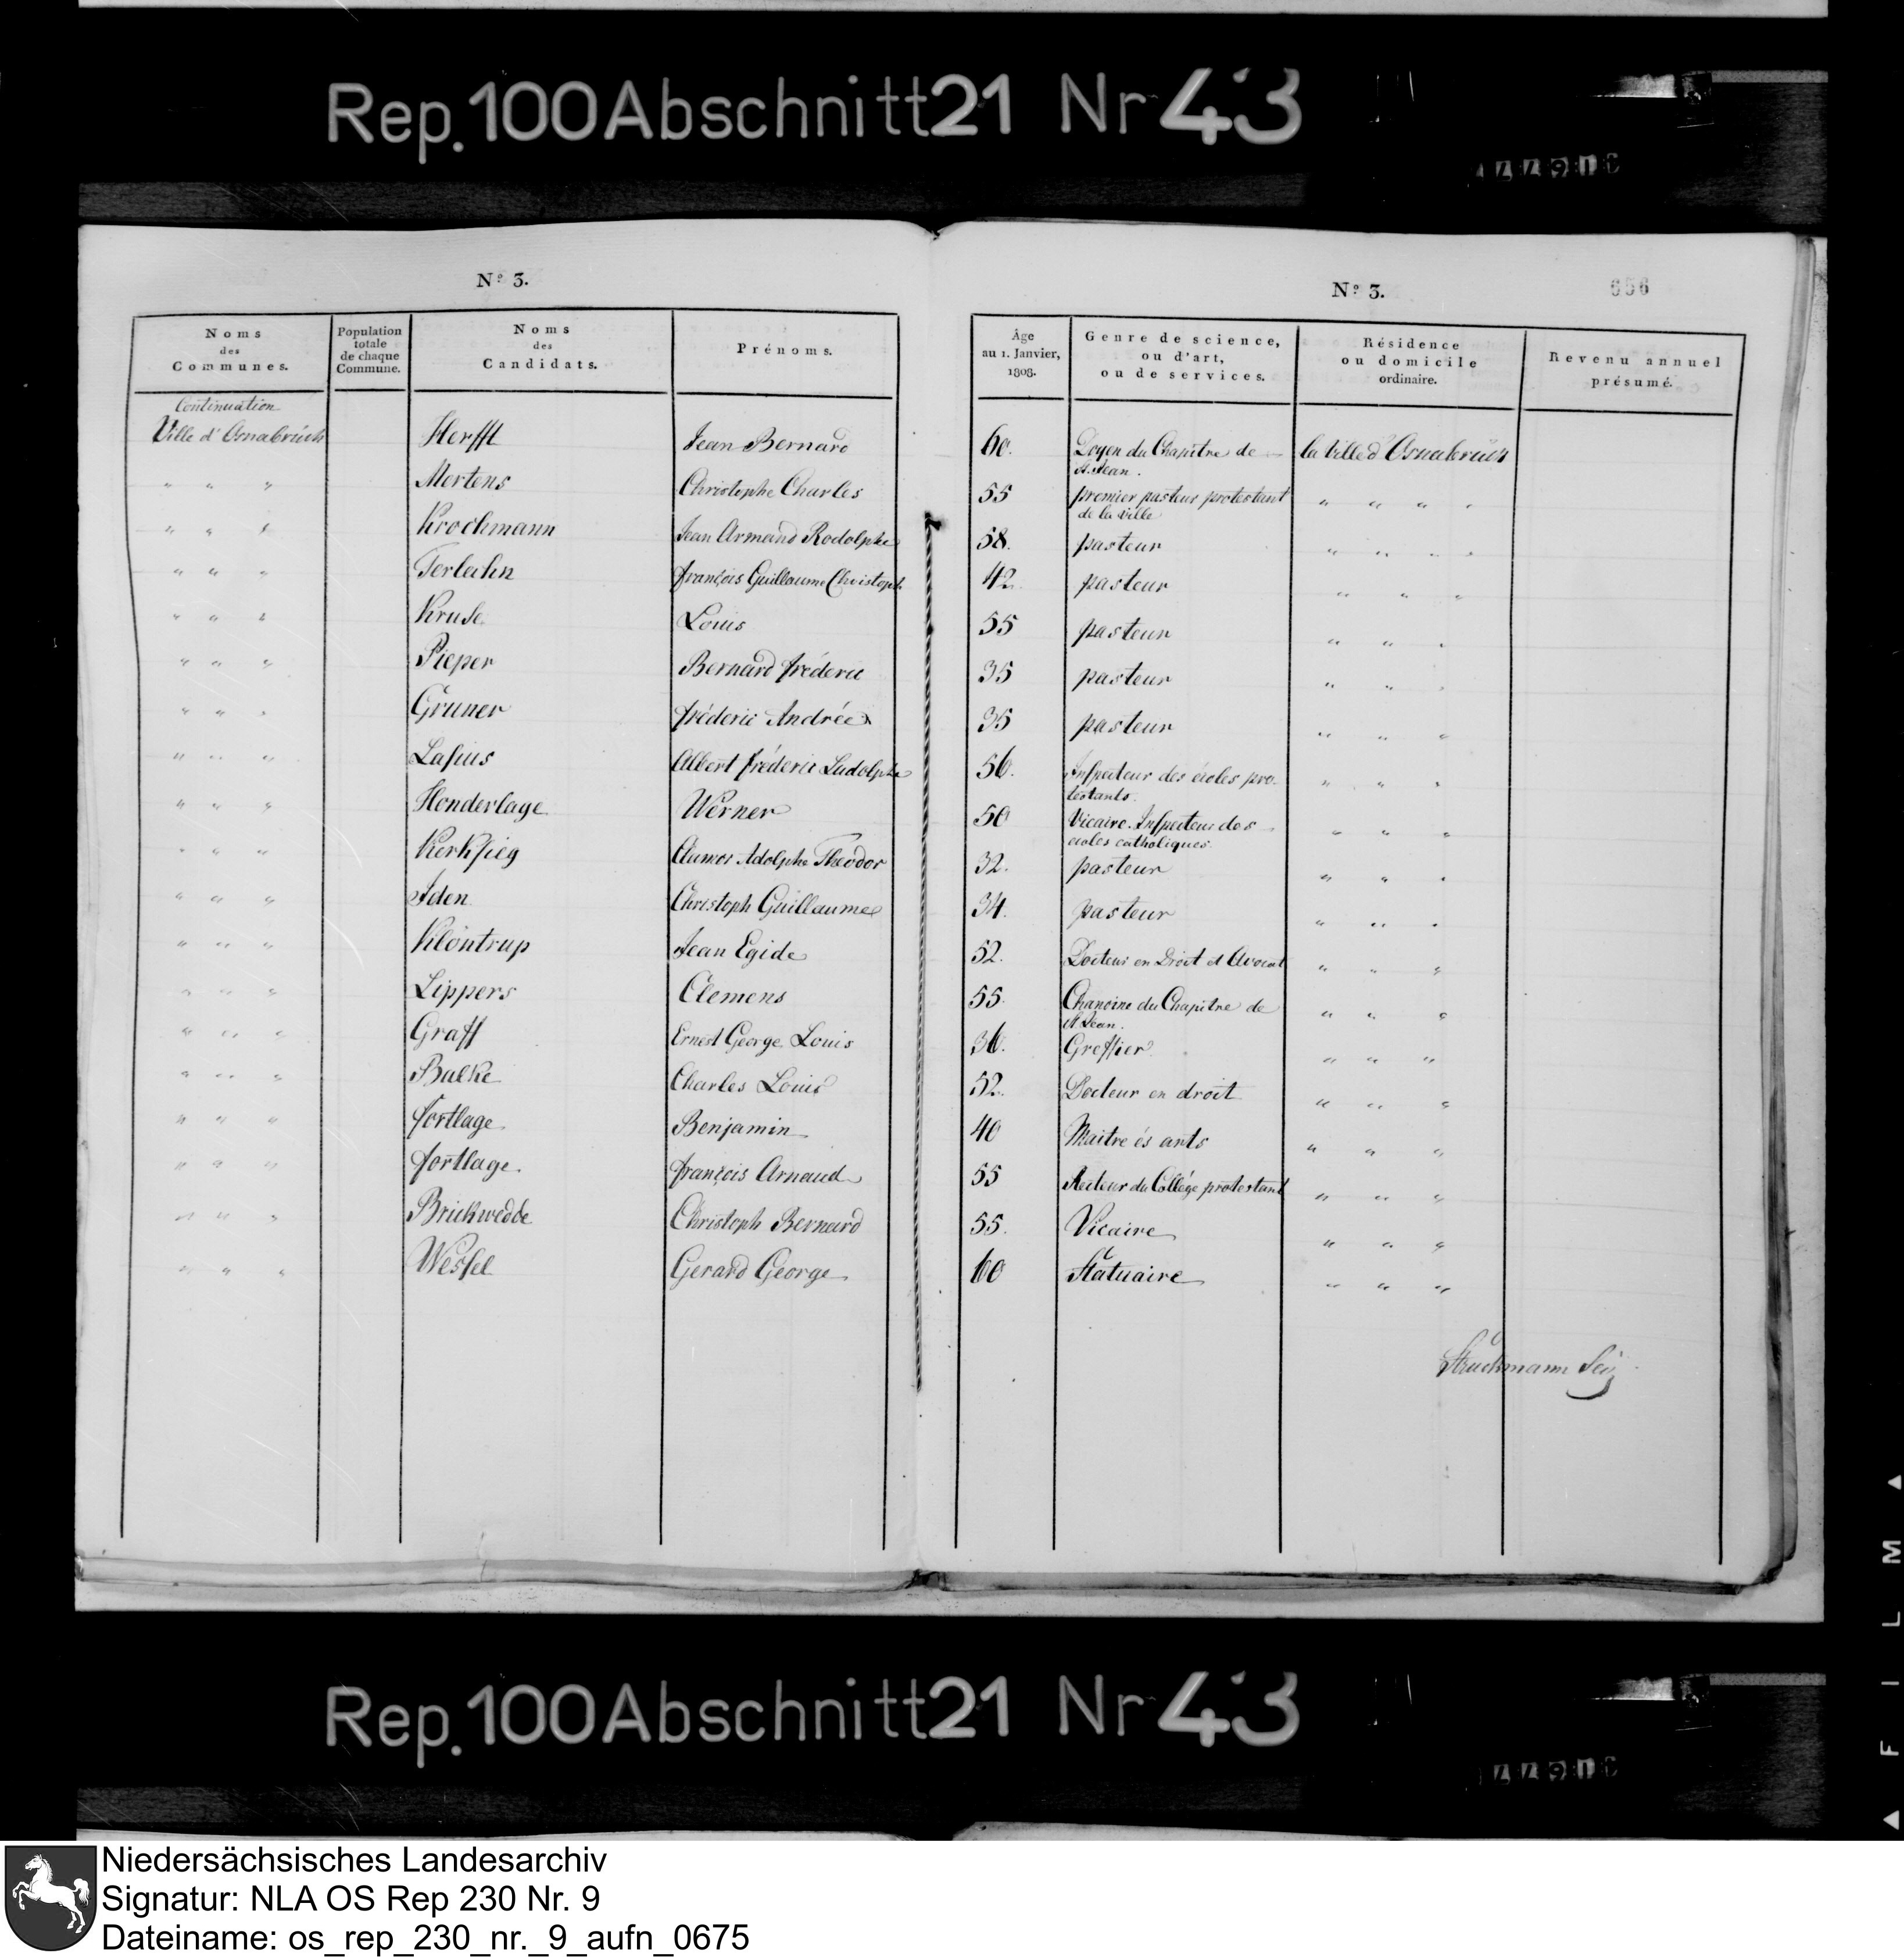 Rep. 100 Abschnitt 21 Nr 43
Nº 3.
Nº 3.
656
Noms des Communes.
Population totale de chaque Commune.
Noms des Candidats.
Prénoms.
Âge au 1. Janvier, 1808.
Genre de science, ou d'art, ou de services.
Résidence ou domicile ordinaire.
Revenu annuel présumé.
Continuation
Ville d'Osnabrück Herfft Jean Bernard 60. Doyen du Chapitre de la Ville d'Osnabrück
St. Jean.
" " " Mertens Christophe Charles 55 premier pasteur protestant " " " "
de la ville
" " " Krochmann Jean Armand Rodolphe 58. pasteur " " " "
" " " François Guillaume Christoph 42. pasteur " " "
" " " Kruse Louis 55 pasteur " " "
" " " Pieper Bernard Fréderic 35 pasteur " " "
" " " Gruner Fréderic André 35 pasteur " " "
" " " Lasius Albert Fréderic Ludolphe 56. Inspecteur des écoles pro- " " "
testants.
" " " Henderlage Werner 50 Vicaire. Inspecteur des " " "
ecoles catholiques.
" " " Kerksieg Adolphe Theodor 32. pasteur " " "
" " " Iden Christoph Guillaume 34. pasteur " " "
" " " Klöntrup Jean Egide 52. Docteur en Droit et Avocat " " "
" " " Lippers Clemens 55. Chanoine du Chapitre de " " "
St Jean.
" " " Graff Ernest George Louis 36. Greffier " " "
" " " Balke Charles Louis 52. Docteur en droit " " "
" " " Fortlage Benjamin 40 Maitre és arts " " "
" " " Fortlage. François Arnaud 55 Recteur du Collége protestant " " "
" " " Brickwedde Christoph Bernard 55. Vicaire " " "
" " " Wessel Gerard George 60 Statuaire " " "
Struckmann
Rep. 100 Abschnitt 21 Nr 43
FILM
Niedersächsisches Landesarchiv
Signatur: NLA OS Rep 230 Nr. 9
Dateiname: os_rep_230_nr._9_aufn_0675